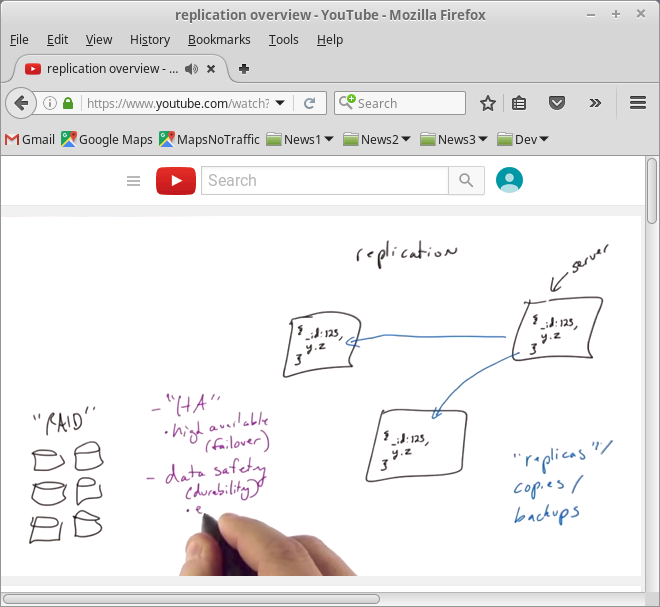 replication overview - YouTube - Mozilla Firefox
File Edit View History Bookmarks Tools Help
replication overview - ...
https://www.youtube.com/watch?
Search
Gmail Google Maps MapsNoTraffic News1 News2 News3 Dev
Search
replication
server
{ _id:123,
y.z
}
{ _id:123,
y.z
}
{ _id:123,
y.z
}
"RAID"
- "HA"
• high available
(failover)
- data safety
(durability)
• e
"replicas"/
copies/
backups